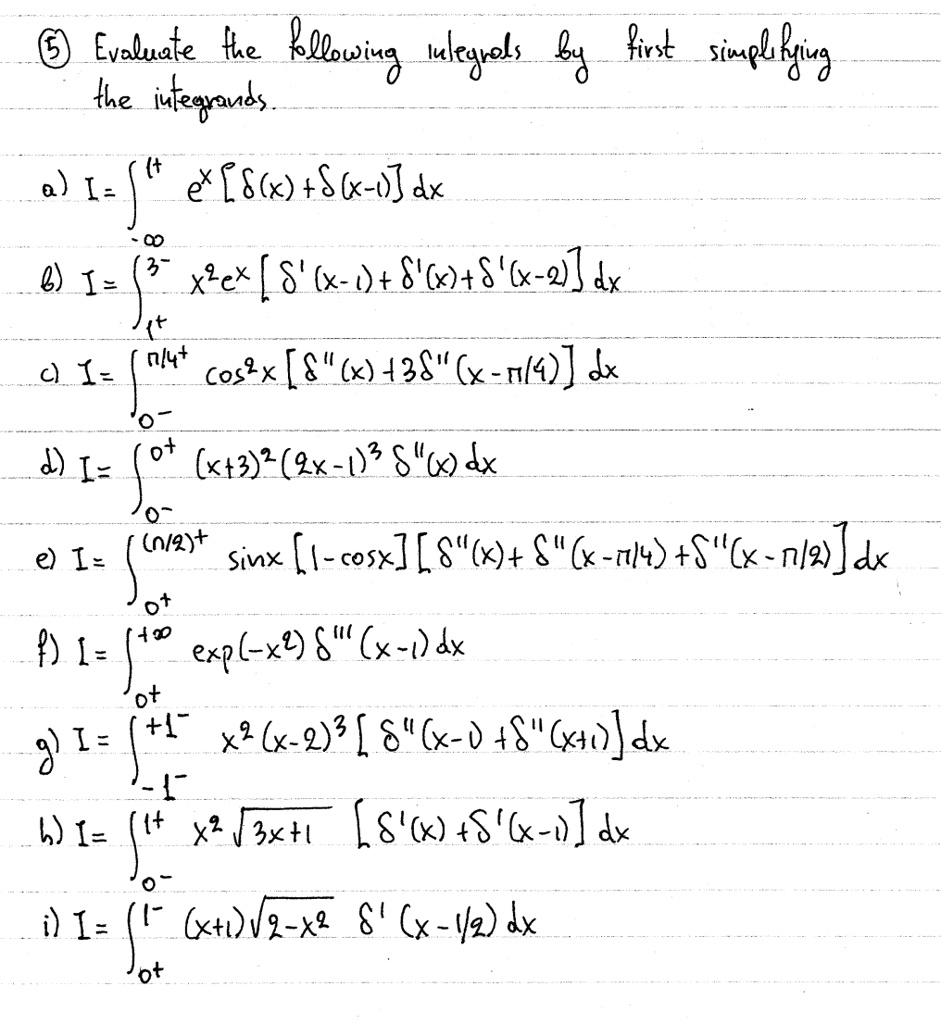 ⑤ Evaluate the following integrals by first simplifying
the integrands.
a) I = ∫_{-∞}^{1+} e^x [δ(x) + δ(x-1)] dx
b) I = ∫_{1+}^{3-} x²e^x [δ'(x-1) + δ'(x) + δ'(x-2)] dx
c) I = ∫_{0-}^{π/4+} cos²x [δ''(x) + 3δ''(x-π/4)] dx
d) I = ∫_{0-}^{0+} (x+3)²(2x-1)³ δ''(x) dx
e) I = ∫_{0+}^{(π/2)+} sinx [1-cosx] [δ''(x) + δ''(x-π/4) + δ''(x-π/2)] dx
f) I = ∫_{0+}^{+∞} exp(-x²) δ'''(x-1) dx
g) I = ∫_{-1-}^{+1-} x²(x-2)³ [δ''(x-1) + δ''(x+1)] dx
h) I = ∫_{0-}^{1+} x² √(3x+1) [δ'(x) + δ'(x-1)] dx
i) I = ∫_{0+}^{1-} (x+1)√(2-x²) δ'(x-1/2) dx